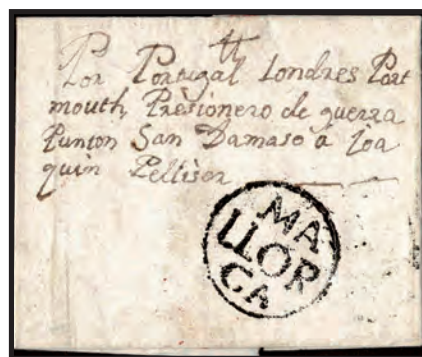 tt
Por Portugal Londres Port
mouth, Presionero de guerra
Punton San Damaso a Joa
quin Pelliser
MA-
LLOR
CA